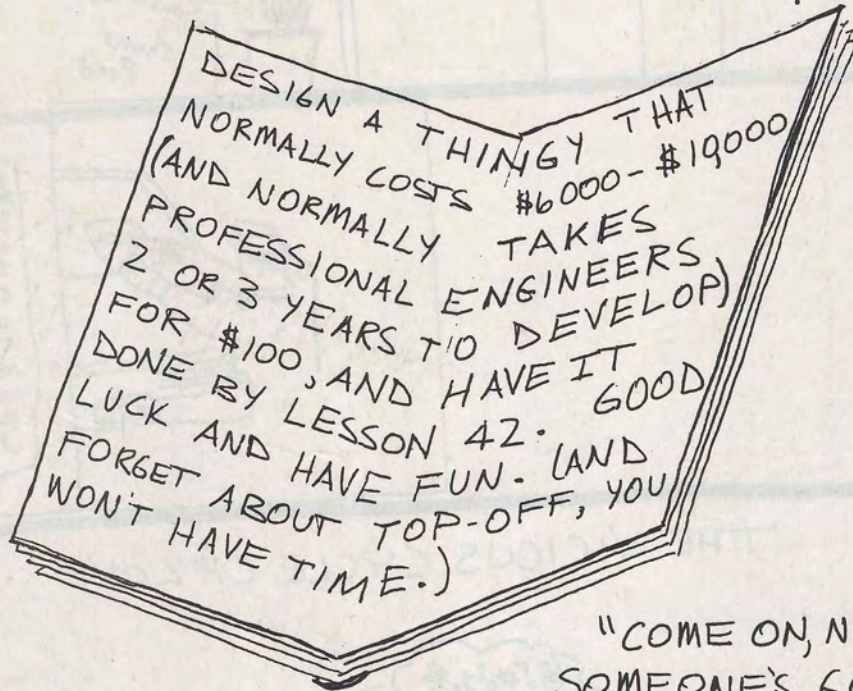 DESIGN A THINGY THAT
NORMALLY COSTS $6000 - $10,000
(AND NORMALLY TAKES
PROFESSIONAL ENGINEERS
2 OR 3 YEARS TO DEVELOP)
FOR $100, AND HAVE IT
DONE BY LESSON 42. GOOD
LUCK AND HAVE FUN. (AND
FORGET ABOUT TOP-OFF, YOU
WON'T HAVE TIME.)
"COME ON, N
SOMEONE'S